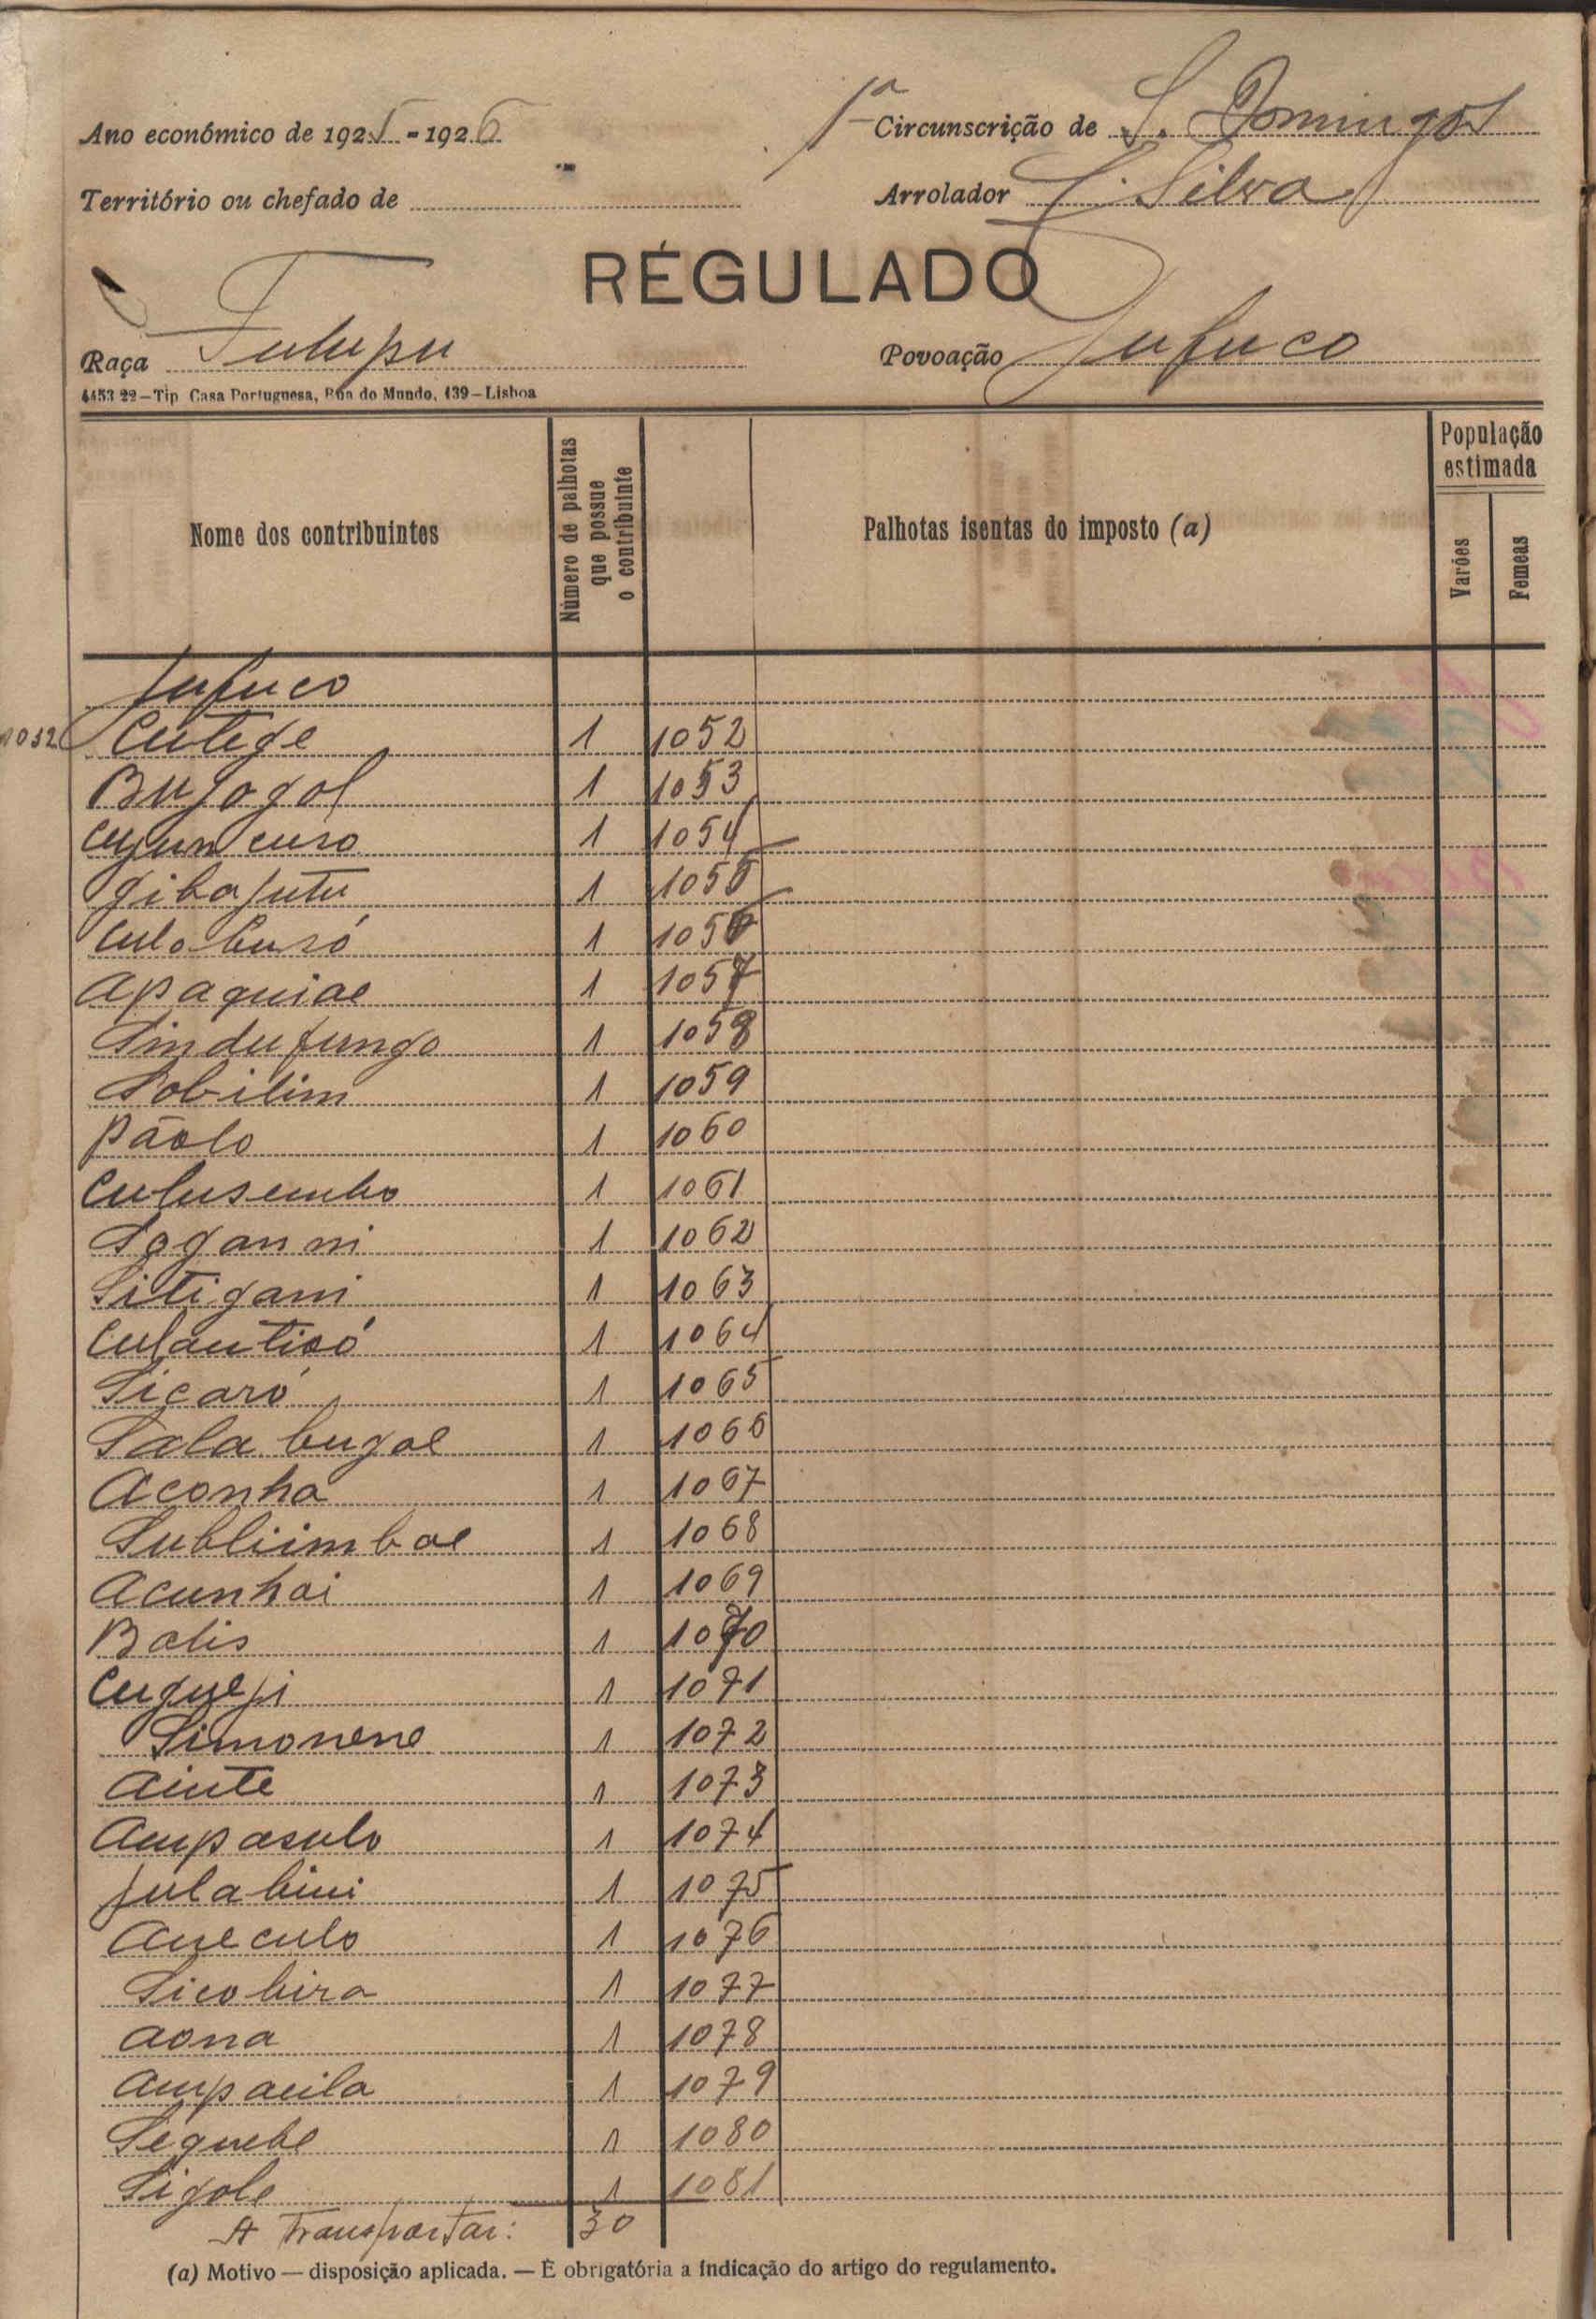 Ano económico de 1925-1926
1ª Circunscrição de S. Domingos
Território ou chefado de
Arrolador Silva
RÉGULADO
Raça Fulupu
Povoação Jufuco
4453 22—Tip Casa Portuguesa, Rua do Mundo, 139—Lisboa
Nome dos contribuintes
Número de palhotas que possue o contribuinte
Palhotas isentas do imposto (a)
População estimada
Varões
Femeas
Jufuco
1052 Cutege 1 1052
Bujogol 1 1053
1 1054
Gibajutu 1 1055
1 1056
Apaquiae 1 1057
Sindufungo 1 1058
Sobilim 1 1059
Páolo 1 1060
Culusumbo 1 1061
Soganni 1 1062
Sitigani 1 1063
Culautisó 1 1064
Sicaró 1 1065
Sala bugae 1 1066
Aconha 1 1067
Subliimbae 1 1068
Acunhai 1 1069
Balis 1 1070
Cuguepi 1 1071
Simonene 1 1072
Aiute 1 1073
Aupasulo 1 1074
Julabiui 1 1075
Aueculo 1 1076
Sicobira 1 1077
Aona 1 1078
Ampauila 1 1079
Seguebe 1 1080
Sigole 1 1081
A Transportar: 30
(a) Motivo — disposição aplicada. — É obrigatória a indicação do artigo do regulamento.